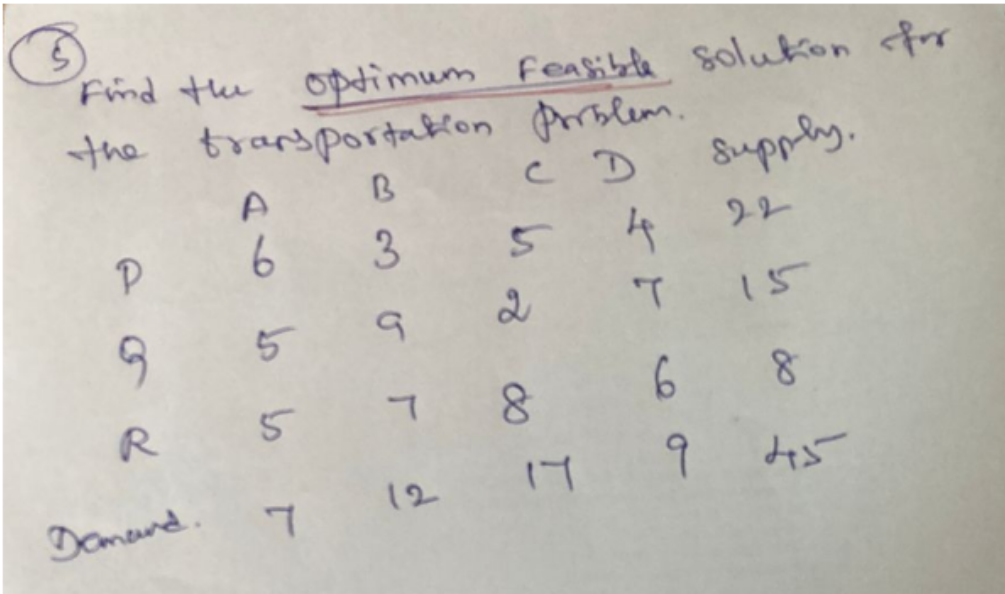 5
Find the optimum Feasible solution for
the transportation problem.
A B C D supply.
P 6 3 5 4 22
Q 5 9 2 7 15
R 5 7 8 6 8
Demand. 7 12 17 9 45